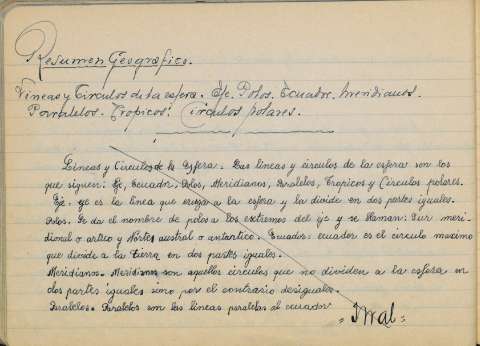 Resumen Geografico.
Lineas y Circulos de la esfera. Eje. Polos. Ecuador. Meridianos.
Paralelos. Tropicos. Circulos polares.
Lineas y Circulos de la Esfera. Las lineas y circulos de la esfera son los
que siguen: Eje, Ecuador, Polos, Meridianos, Paralelos, Tropicos y Circulos polares.
Eje. eje es la linea que cruza a la esfera y la divide en dos partes iguales.
Polos. Se da el nombre de polos a los extremos del eje y se llaman: Sur meri-
dional o artico y Norte, austral o antartico. Ecuador: ecuador es el circulo maximo
que divide a la tierra en dos partes iguales.
Meridianos. Meridianos son aquellos circulos que no dividen a la esfera en
dos partes iguales sino por el contrario desiguales.
Paralelos. Paralelos son las lineas paralelas al ecuador